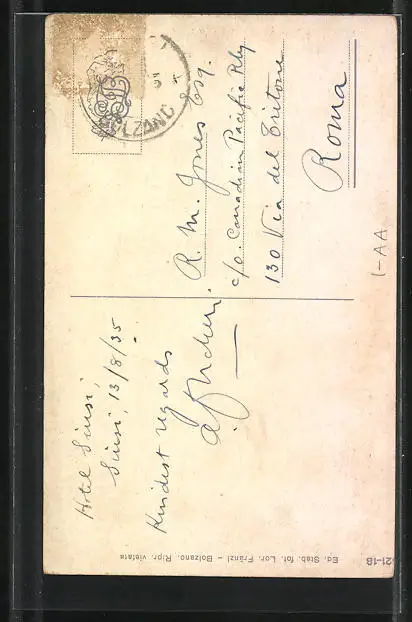 Hotel Siusi,
Siusi, 13/8/35
Kindest regards
BOLZANO
R. M. Jones Esq.
c/o. Canadian Pacific Rly
130 Via del Tritone
Roma
1-AA
Ed. Stab. fot. Lor. Fränzl - Bolzano. Ripr. vietata
21-1B